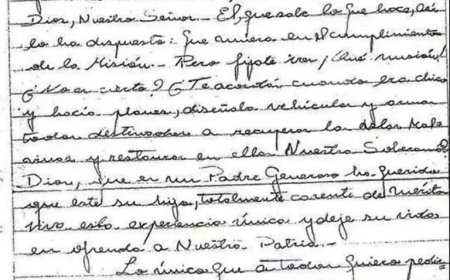 Dios, Nuestro Señor - El, que sabe lo que hace, así
lo ha dispuesto: que muera en el cumplimiento
de la Misión - Pero fijate vos ¡Qué misión!
¿No es cierto? ¿Te acordás cuando era chico
y hacía planes, diseñaba vehículos y armas
todos destinados a recuperar las Islas Mal
vinas y restaurar en ellas Nuestra Soberanía?
Dios, que es un Padre Generoso ha querido
que este su hijo, totalmente carente de mérito
viva esta experiencia única y deje su vida
en ofrenda a Nuestra Patria -
Lo único que a todos quiero pedir